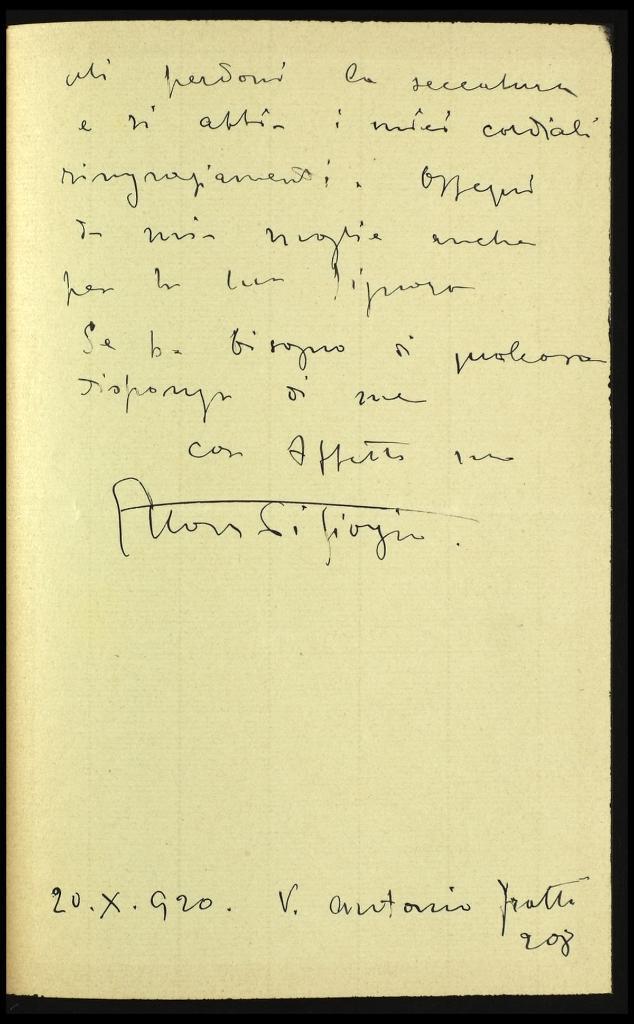 Mi perdoni la seccatura
e si abbia i miei cordiali
ringraziamenti. Ossequi
da mia moglie anche
per la sua Signora
Se ha bisogno di qualcosa
disponga di me
con affetto suo
Ettore di Giorgio.
20.X.920. V. Antonio Fratti
208